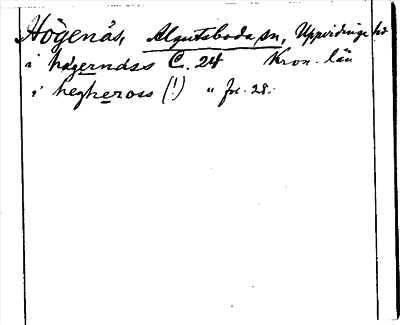 Högenås, Algutsboda sn, Uppvidinge hd
i hagernass C. 24 Kron. län
i hegheross (!) " fol. 28.